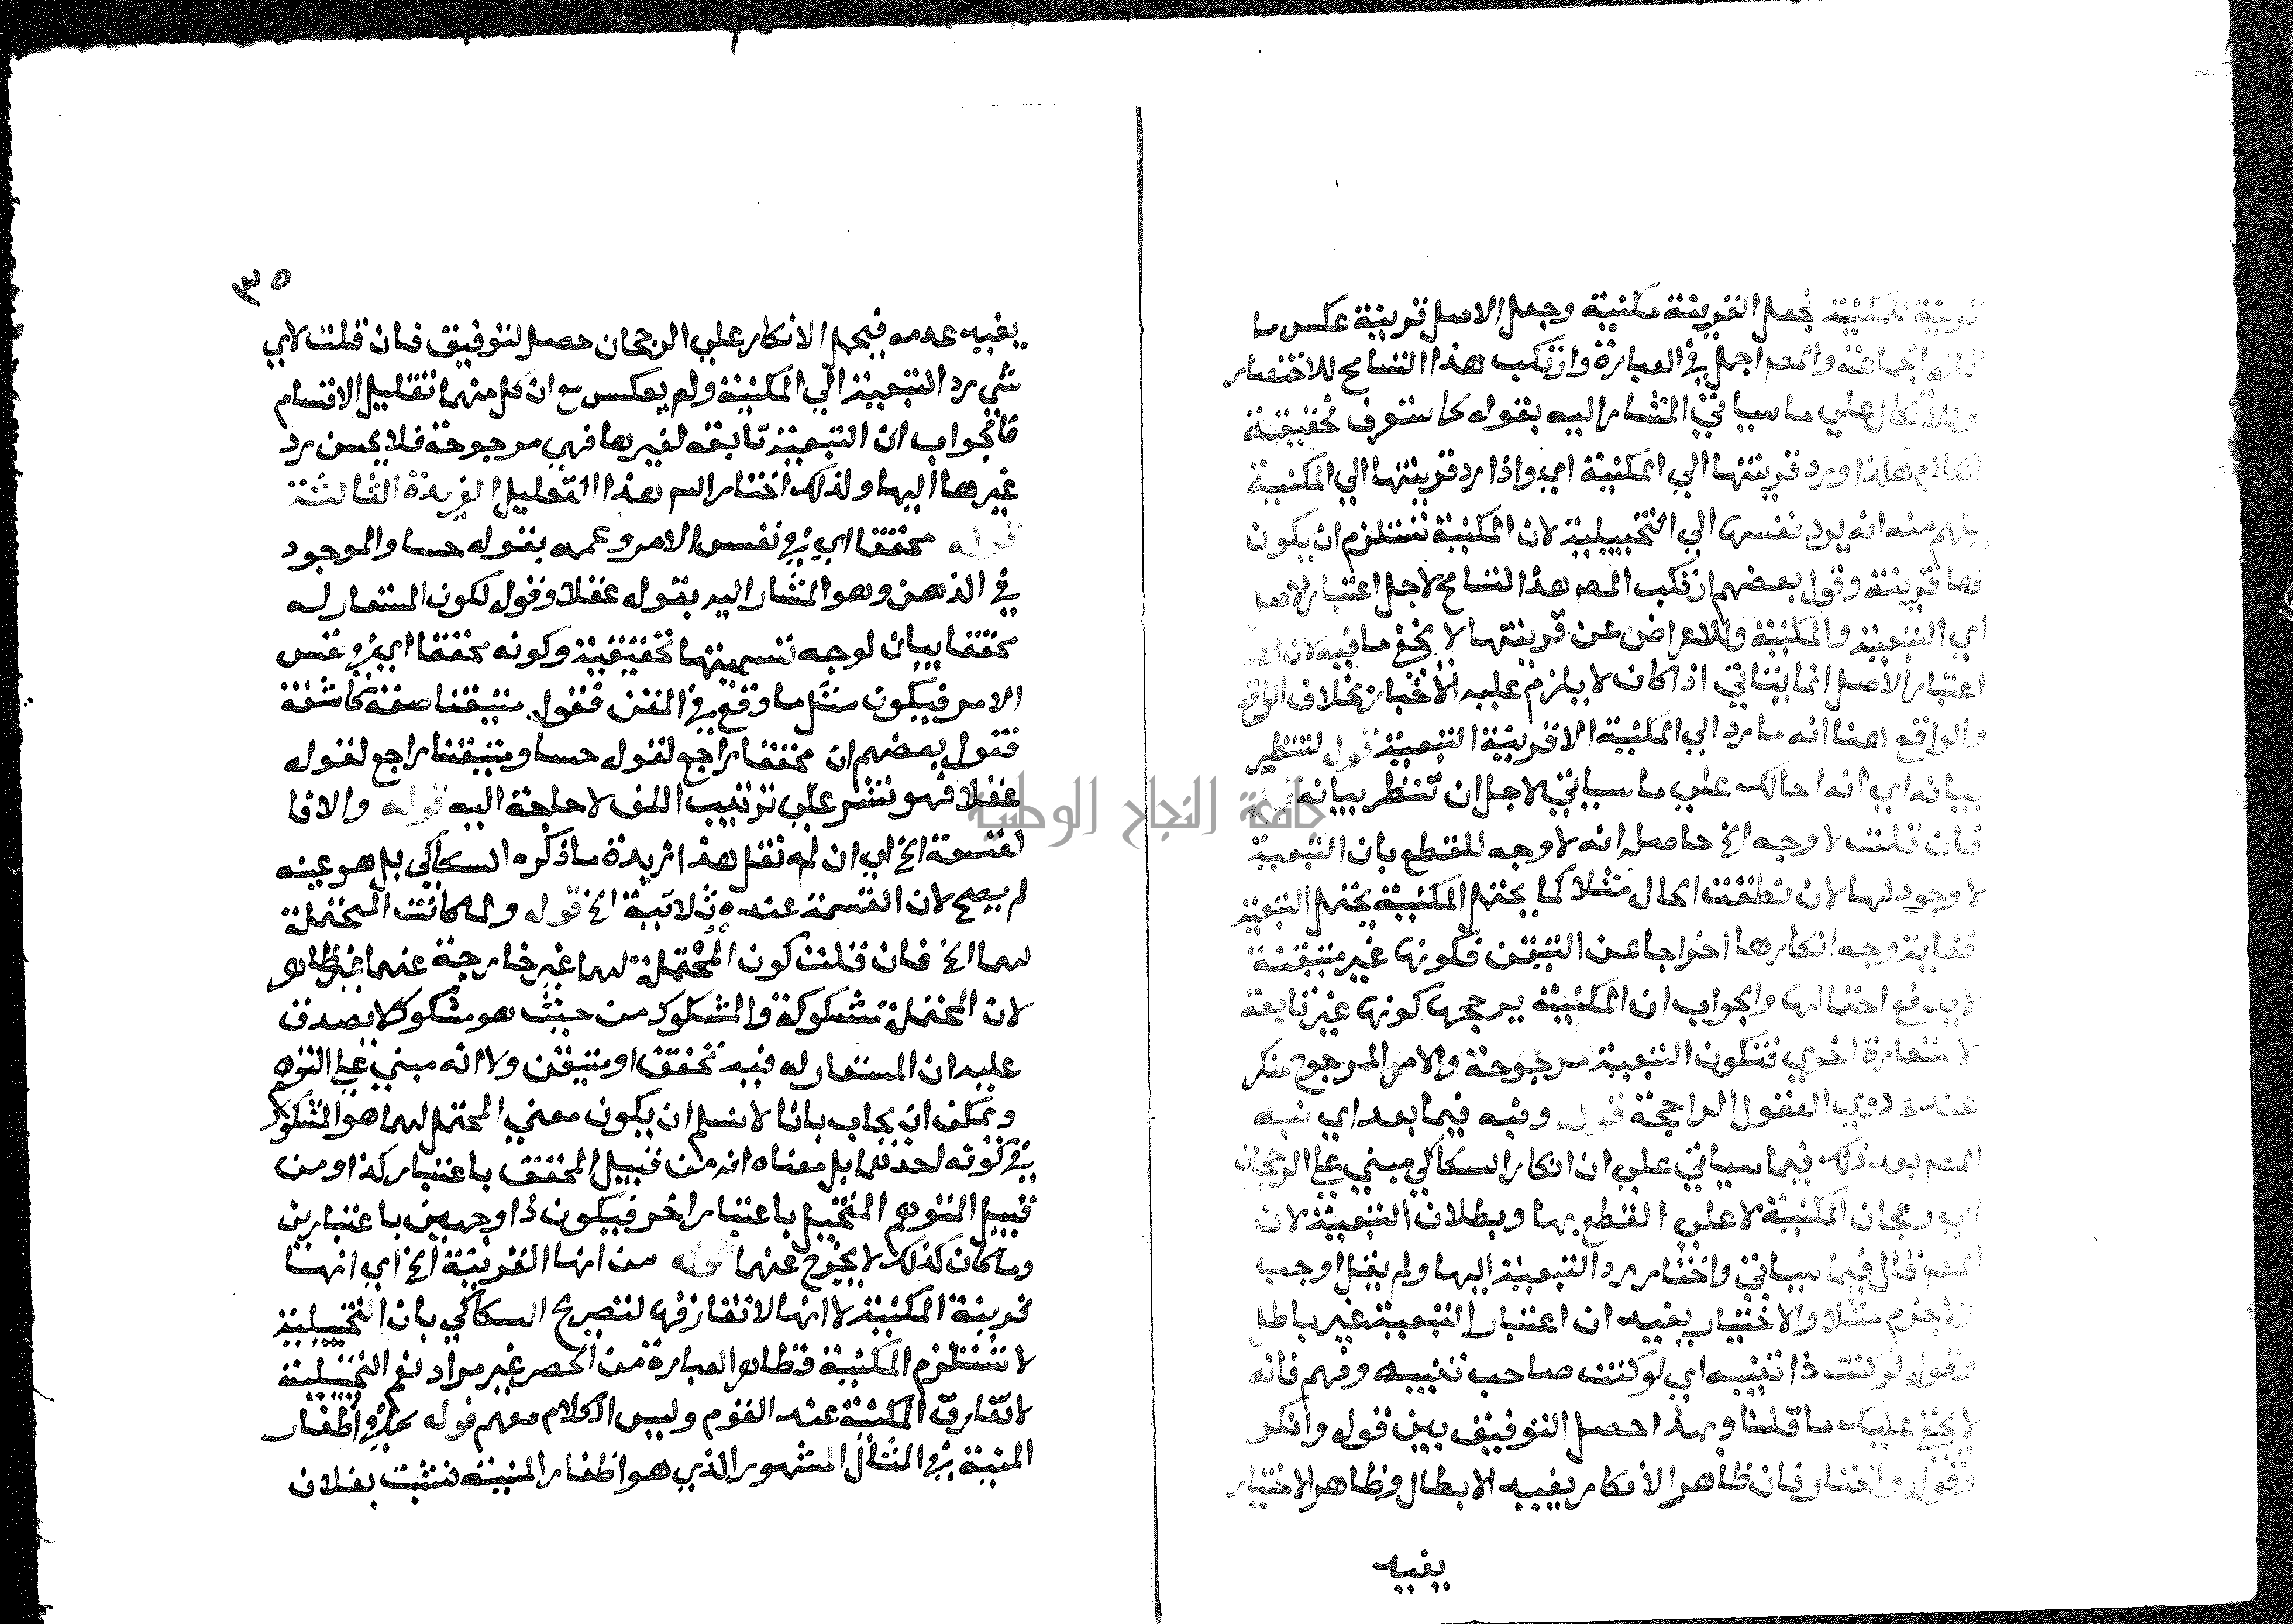 قرينة المكنية بجعل القرينة مكنية وجعل الاصل قرينة عكس ما
الجماعة والمصـ اجمل في العبارة وارتكب هذا التسامح للاختصار
علي ما سياتي المشار اليه بقوله كما ستعرف حقيقة
ورد قرينتها الي المكنية اي واذا رد قرينتها الي المكنية
يفهم منه انه يرد نفسها الي التخييلية لان المكنية تستلزم ان يكون
لها قرينة وقول بعضهم ارتكب المصـ هذا التسامح لاجل اعتبار الاصل
اي التبعية والمكنية وللاعراض عن قرينتها لا يخفي ما فيه لان
اعتبار الاصل انما يتاتي اذا كان لا يلزم عليه الاخبار بخلاف الواقع
والواقع هنا انه ما رد الي المكنية الا قرينة التبعية قوله لتنتظر
بيانه اي انه احالك علي ما سياتي لاجل ان تنتظر بيانه قوله
فان قلت لا وجه الخ حاصله انه لا وجه للقطع بان التبعية
لا وجود لها لان نطقت الحال مثلا كما يحتمل المكنية يحتمل التبعية
فغاية وجه انكارها اخراجا عن التيقن فكونها غير متيقنة
لا يدفع احتمالها والجواب ان المكنية يرجحها كونها غير تابعة
لاستعارة اخري فتكون التبعية مرجوحة والامر المرجوح منكر
عند ذوي العقول الراجحة قوله ونبه فيما بعد اي نبه
المصـ بعد ذلك فيما سياتي علي ان انكار السكاكي مبني علي الرجحان
اي رجحان المكنية لا علي القطع بها وبطلان التبعية لان
المصـ قال فيما سياتي واختار رد التبعية اليها ولم يقل اوجب
او جزم مثلا والاختيار يفيد ان اعتبار التبعية غير باطل
وقوله لو كنت ذا تنبيه اي لو كنت صاحب تنبيه وفهم فانه
لا يخفي عليك ما قلنا وبهذا حصل التوفيق بين قوله وانكر
وقوله واختار فان ظاهر الانكار يفيد الابطال وظاهر الاختيار
يفيد
٣٥
يفيد عدمه فيحمل الانكار علي الرجحان حصل التوفيق فان قلت لاي
شي رد التبعية الي المكنية ولم يعكس مع ان كل منهما تقليل الاقسام
فالجواب ان التبعية تابعة لغيرها فهي مرجوحة فلا يحسن رد
غيرها اليها ولذلك اختار المـ هذا التعليل الفريدة الثالثة
قوله محققا اي في نفس الامر وعممه بقوله حسا والموجود
في الذهن وهو المشار اليه بقوله عقلا وقوله لكون المستعار له
محققا بيان لوجه تسميتها تحقيقية وكونه محققا اي في نفس
الامر فيكون مثل ما وقع في المتن فقوله متيقنا صفة كاشفة
فقول بعضهم ان محققا راجع لقوله حسا ومتيقنا راجع لقوله
عقلا فهو نشر علي ترتيب اللف لا حاجة اليه قوله والا فا
لقسمة الخ اي ان لم نقل هذا زبدة ما ذكره السكاكي بل هو عينه
لم يصح لان القسمة عنده ثلاثية الخ قوله ولما كانت المحتملة
لهما الخ فان قلت كون المحتملة لهما غير خارجة عنهما غير ظاهر
لان المحتملة مشكوكة والمشكوك من حيث هو مشكوك لا يصدق
عليه ان المستعار له فيه تحقق او متيقن ولا انه مبني علي التوهم
ويمكن ان يجاب بانا لا نسلم ان يكون معني المحتمل لهما هو المشكوك
في كونه احدهما بل معناه انه من قبيل المحقق باعتبار كذا ومن
قبيل المتوهم المتخيل باعتبار اخر فيكون ذا وجهين باعتبارين
وما كان كذلك لا يخرج عنهما قوله من انها القرينة الخ اي انها
قرينة المكنية لا انها لا تفارقها لتصريح السكاكي بان التخييلية
لا تستلزم المكنية فظاهر العبارة من الحصر غير مراد نعم التخييلية
لا تفارق المكنية عند القوم وليس الكلام معهم قوله كما في اظفار
المنية في المثال المشهور الذي هو اظفار المنية نشبت بفلان